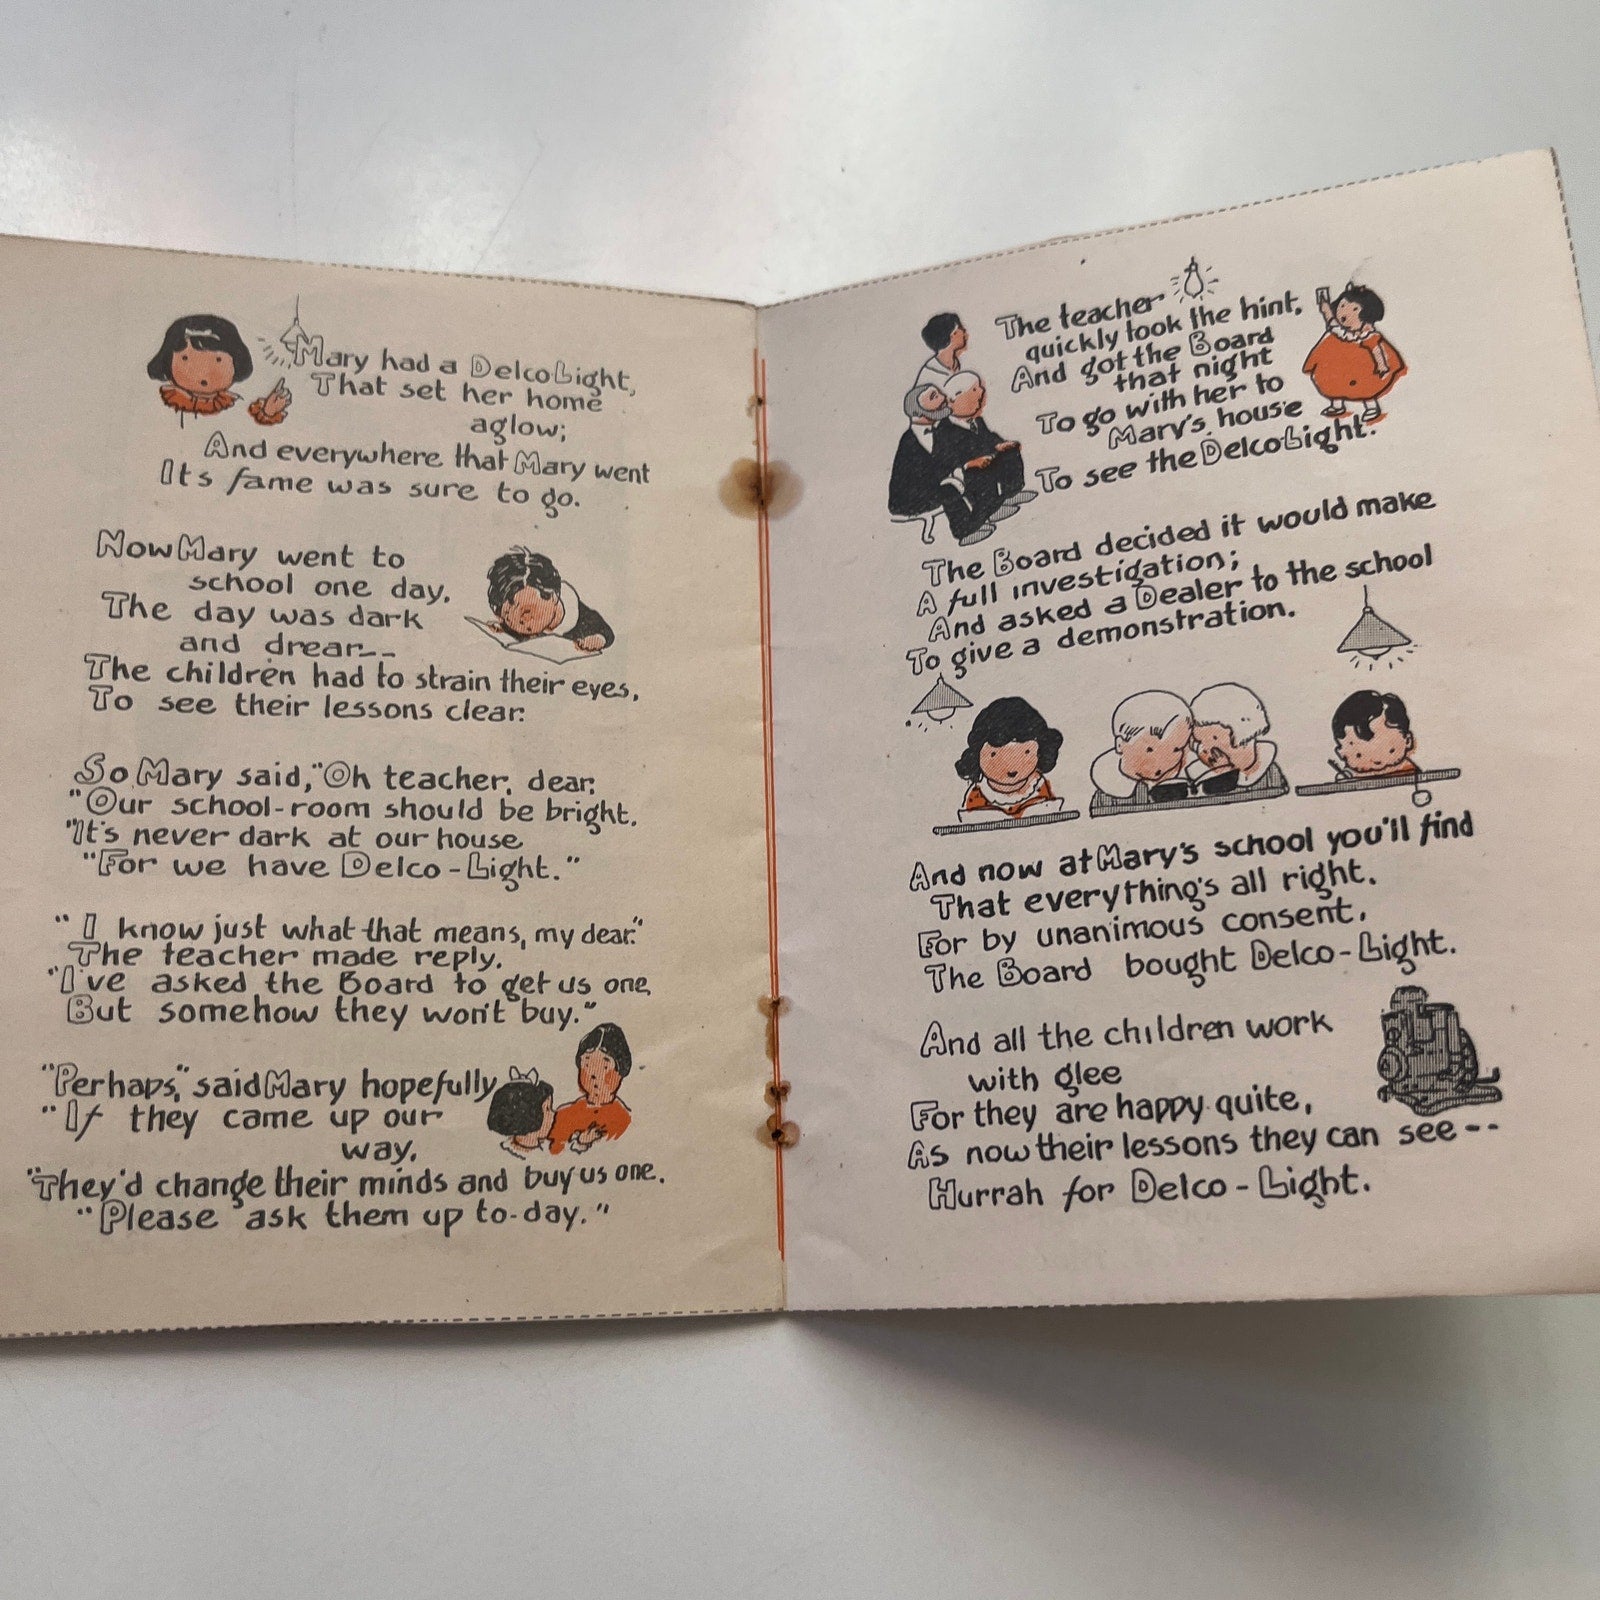 Mary had a Delco Light,
That set her home
aglow;
And everywhere that Mary went
It's fame was sure to go.
Now Mary went to
school one day,
The day was dark
and drear--
The children had to strain their eyes,
To see their lessons clear.
So Mary said, "Oh teacher, dear,
"Our school-room should be bright.
"It's never dark at our house
"For we have Delco-Light."
"I know just what that means, my dear."
The teacher made reply.
"I've asked the Board to get us one,
But somehow they won't buy."
"Perhaps," said Mary hopefully
"If they came up our
way,
"They'd change their minds and buy us one.
"Please ask them up to-day."
The teacher
quickly took the hint,
And got the Board
that night
To go with her to
Mary's house
To see the Delco Light.
The Board decided it would make
A full investigation;
And asked a Dealer to the school
To give a demonstration.
And now at Mary's school you'll find
That everything's all right.
For by unanimous consent,
The Board bought Delco-Light.
And all the children work
with glee
For they are happy quite,
As now their lessons they can see--
Hurrah for Delco-Light.